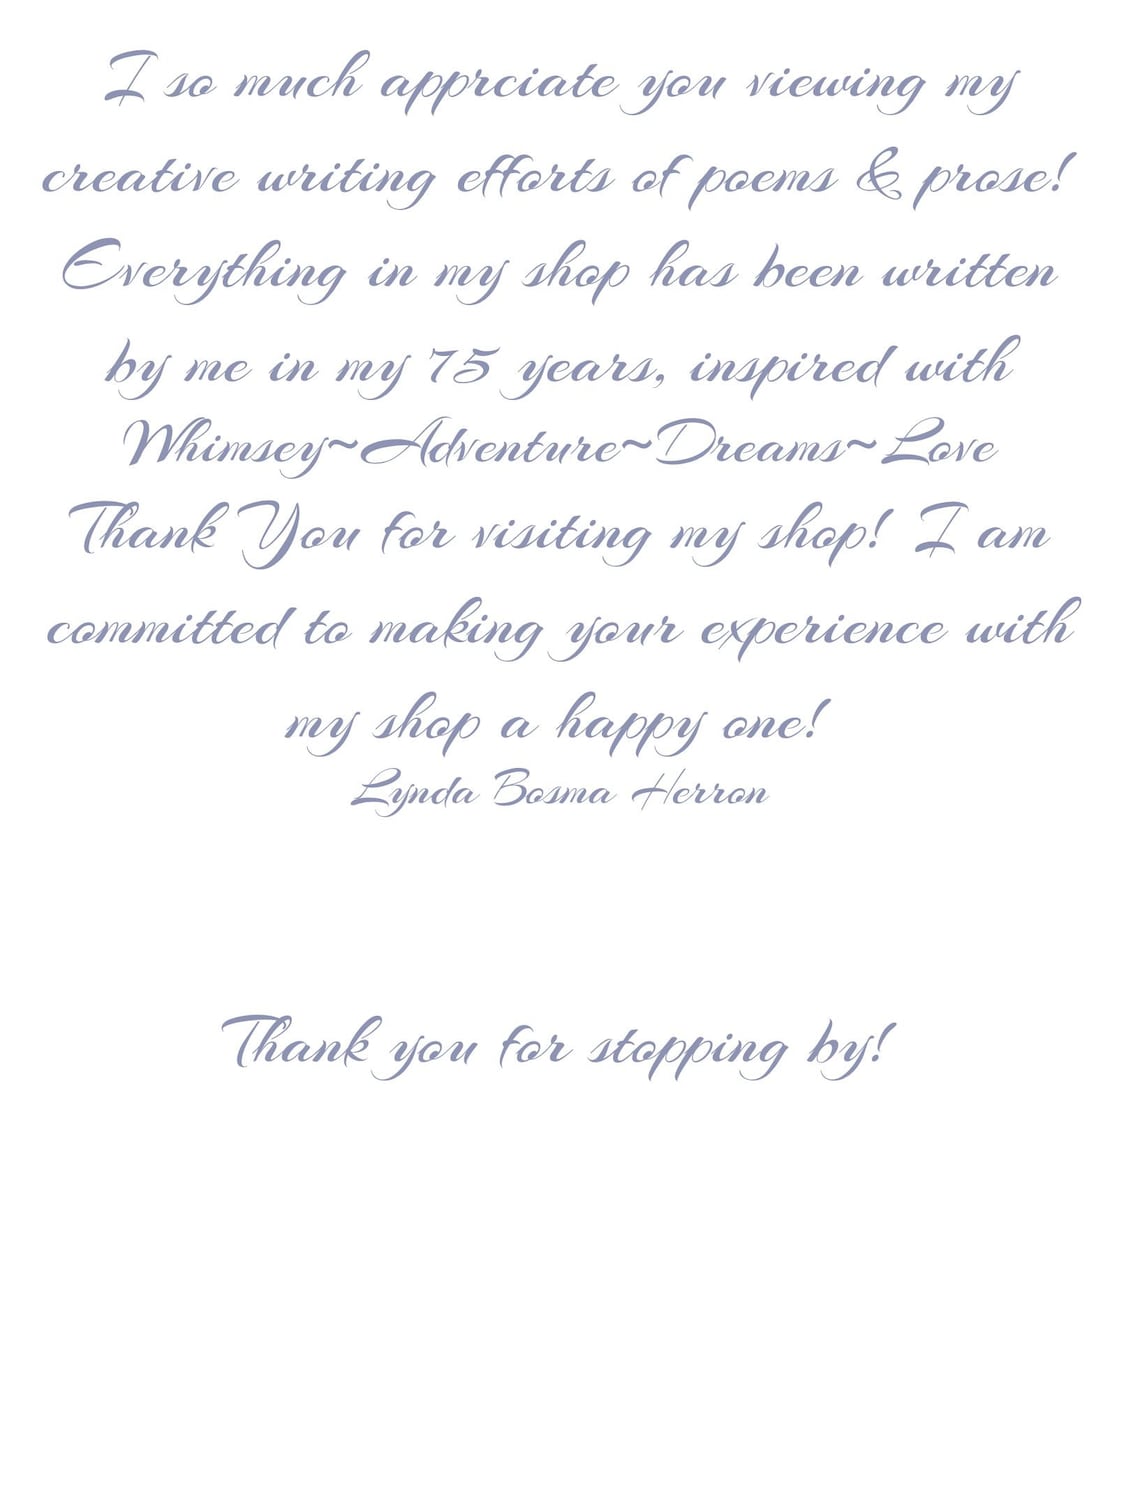 I so much apprciate you viewing my
creative writing efforts of poems & prose!
Everything in my shop has been written
by me in my 75 years, inspired with
Whimsey~Adventure~Dreams~Love
Thank You for visiting my shop! I am
committed to making your experience with
my shop a happy one!
Lynda Bosma Herron
Thank you for stopping by!